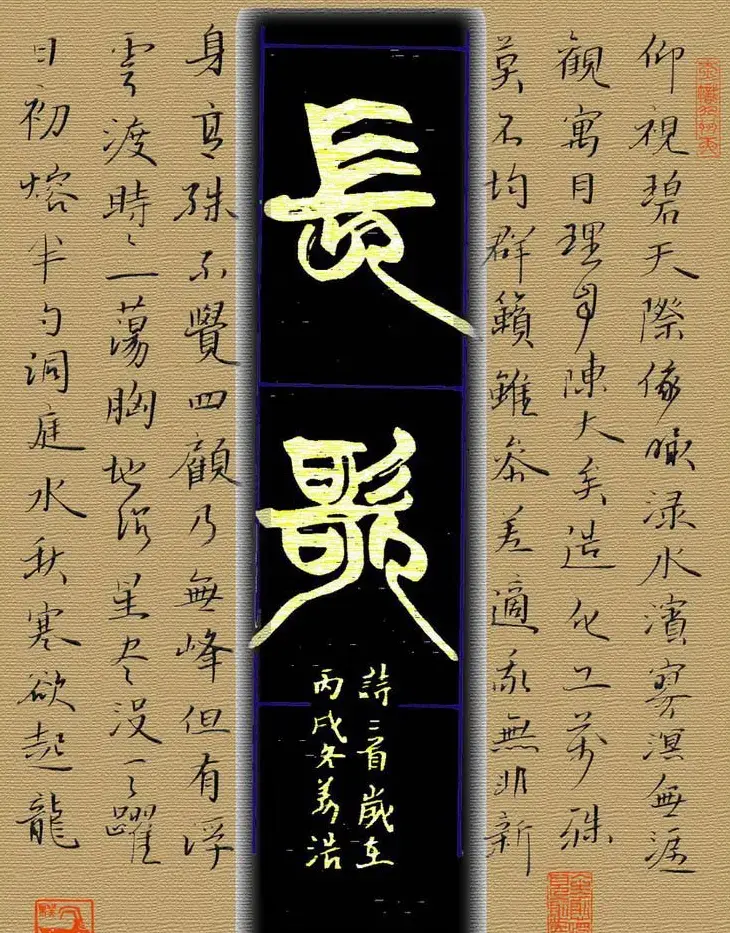 仰視碧天際俯瞰淥水濱寥溟無涯
觀寓目理自陳大矣造化工萬殊
莫不均群籟雖參差適我無非新
長歌
詩三首歲在
丙戌冬姜浩
身高殊不覺四顧乃無峰但有浮
雲渡時〻一蕩胸地沉星盡沒天躍
日初熔半勺洞庭水秋寒欲起龍